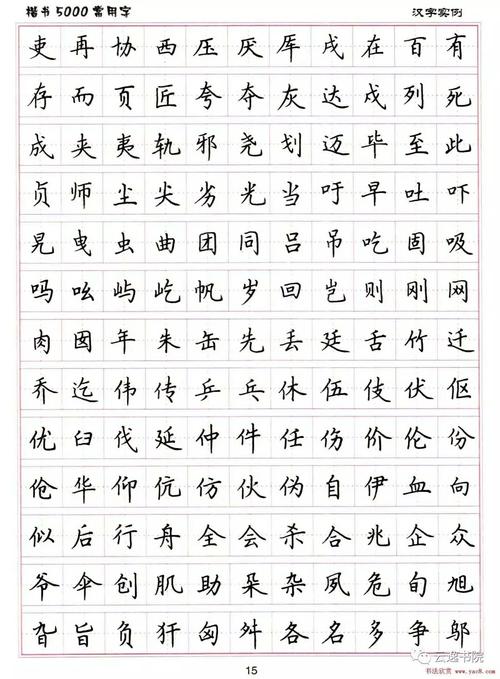 楷书5000常用字 汉字实例
吏再协西压厌厍戌在百有
存而页匠夸夺灰达戍列死
成夹夷轨邪尧划迈毕至此
贞师尘尖劣光当吁早吐吓
晃曳虫曲团同吕吊吃固吸
吗吆屿屹帆岁回岂则刚网
肉囡年朱缶先丢廷舌竹迁
乔迄伟传乒乓休伍伎伏伛
优臼伐延仲件任伤价伦份
伧华仰伉仿伙伪自伊血向
似后行舟全会杀合兆企众
爷伞创肌助朵杂夙危旬旭
旮旨负犴匈舛各名多争邬
15
云逸书院
书法欣赏 www.yac8.com